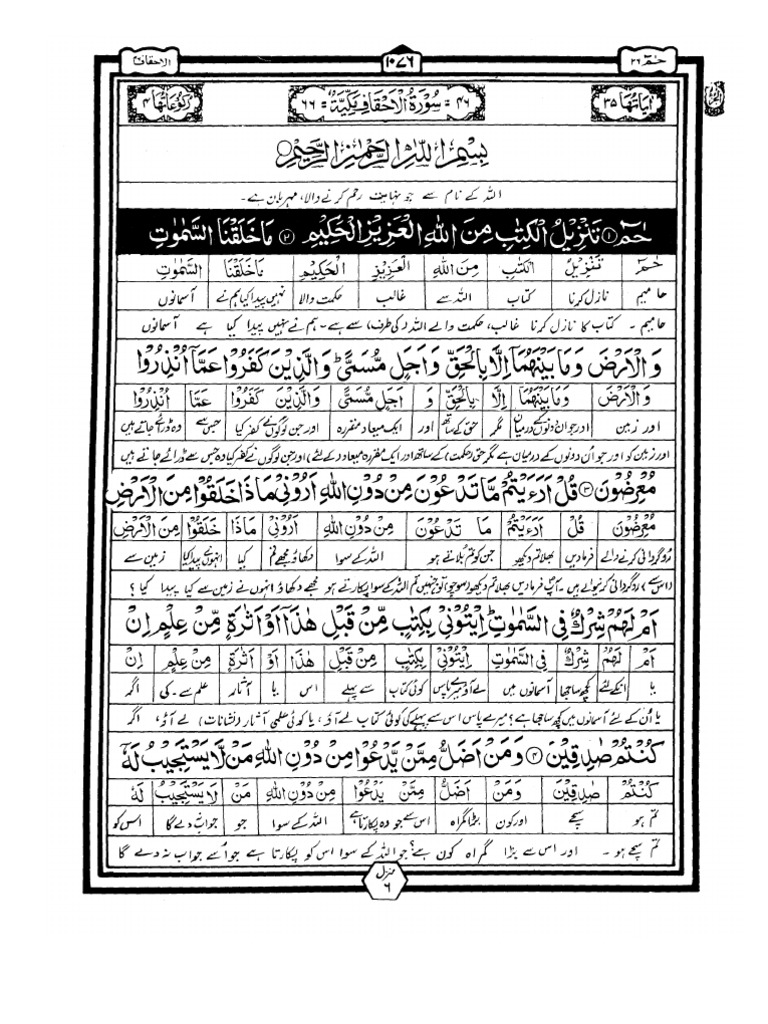 حٰمٓ ۲۶
۱۰۷۶
الاحقاف
اٰیَاتُهَا ۳۵
۴۶ = سُوْرَةُ الْاَحْقَافِ مَكِّيَّةٌ = ۶۶
رُكُوْعَاتُهَا ۴
بِسْمِ اللّٰهِ الرَّحْمٰنِ الرَّحِيْمِ
اللہ کے نام سے جو نہایت رحم کرنے والا، مہربان ہے۔
حٰمٓ ۱ تَنْزِيْلُ الْكِتٰبِ مِنَ اللّٰهِ الْعَزِيْزِ الْحَكِيْمِ ۲ مَا خَلَقْنَا السَّمٰوٰتِ
حٰمٓ تَنْزِيْلُ الْكِتٰبِ مِنَ اللّٰهِ الْعَزِيْزِ الْحَكِيْمِ مَا خَلَقْنَا السَّمٰوٰتِ
حا میم نازل کرنا کتاب اللہ سے غالب حکمت والا نہیں پیدا کیا ہم نے آسمانوں
حا میم ۔ کتاب کا نازل کرنا غالب، حکمت والے اللہ (کی طرف) سے ہے۔ ہم نے نہیں پیدا کیا ہے آسمانوں
وَالْاَرْضَ وَمَا بَيْنَهُمَاۤ اِلَّا بِالْحَقِّ وَاَجَلٍ مُّسَمًّى وَالَّذِيْنَ كَفَرُوْا عَمَّاۤ اُنْذِرُوْا
وَالْاَرْضَ وَمَا بَيْنَهُمَاۤ اِلَّا بِالْحَقِّ وَ اَجَلٍ مُّسَمًّى وَالَّذِيْنَ كَفَرُوْا عَمَّاۤ اُنْذِرُوْا
اور زمین اور جو ان دونوں کے درمیان مگر حق کے ساتھ اور ایک میعاد مقررہ اور جن لوگوں نے کفر کیا جس سے وہ ڈرائے جاتے ہیں
اور زمین کو اور جو ان دونوں کے درمیان ہے مگر حق (حکمت) کے ساتھ اور ایک مقررہ میعاد کے لئے، اور جن لوگوں نے کفر کیا وہ جس سے ڈرائے جاتے ہیں
مُعْرِضُوْنَ ۳ قُلْ اَرَءَيْتُمْ مَّا تَدْعُوْنَ مِنْ دُوْنِ اللّٰهِ اَرُوْنِيْ مَاذَا خَلَقُوْا مِنَ الْاَرْضِ
مُعْرِضُوْنَ قُلْ اَرَءَيْتُمْ مَّا تَدْعُوْنَ مِنْ دُوْنِ اللّٰهِ اَرُوْنِيْ مَاذَا خَلَقُوْا مِنَ الْاَرْضِ
روگردانی کرنے والے فرما دیں بھلا تم دیکھو جن کو تم بلاتے ہو اللہ کے سوا دکھاؤ مجھے تم کیا انہوں نے پیدا کیا زمین سے
(اس سے) روگردانی کرنیوالے ہیں۔ آپؐ فرمادیں بھلا تم دیکھو (سوچو) تو جنہیں تم اللہ کے سوا پکارتے ہو مجھے دکھاؤ انہوں نے زمین سے کیا پیدا کیا ؟
اَمْ لَهُمْ شِرْكٌ فِي السَّمٰوٰتِ اِيْتُوْنِيْ بِكِتٰبٍ مِّنْ قَبْلِ هٰذَاۤ اَوْ اَثٰرَةٍ مِّنْ عِلْمٍ اِنْ
اَمْ لَهُمْ شِرْكٌ فِي السَّمٰوٰتِ اِيْتُوْنِيْ بِكِتٰبٍ مِّنْ قَبْلِ هٰذَا اَوْ اَثٰرَةٍ مِّنْ عِلْمٍ اِنْ
یا انکے لئے کچھ ساجھا آسمانوں میں لے آؤ میرے پاس کوئی کتاب سے پہلے اس یا آثار علم سے۔ کی اگر
یا اُن کے لئے آسمانوں میں کچھ ساجھا ہے؟ میرے پاس اس سے پہلے کی کوئی کتاب لے آؤ، یا کوئی علمی آثار (نشانات) لے آؤ، اگر
كُنْتُمْ صٰدِقِيْنَ ۴ وَمَنْ اَضَلُّ مِمَّنْ يَّدْعُوْا مِنْ دُوْنِ اللّٰهِ مَنْ لَّا يَسْتَجِيْبُ لَهٗ
كُنْتُمْ صٰدِقِيْنَ وَمَنْ اَضَلُّ مِمَّنْ يَدْعُوْا مِنْ دُوْنِ اللّٰهِ مَنْ لَا يَسْتَجِيْبُ لَهٗ
تم ہو سچے اور کون بڑا گمراہ اس سے جو وہ پکارتا ہے اللہ کے سوا جو جواب نہ دے گا اس کو
تم سچے ہو ۔ اور اس سے بڑا گمراہ کون ہے؟ جو اللہ کے سوا اس کو پکارتا ہے جو اُسے جواب نہ دے گا
منزل
۶